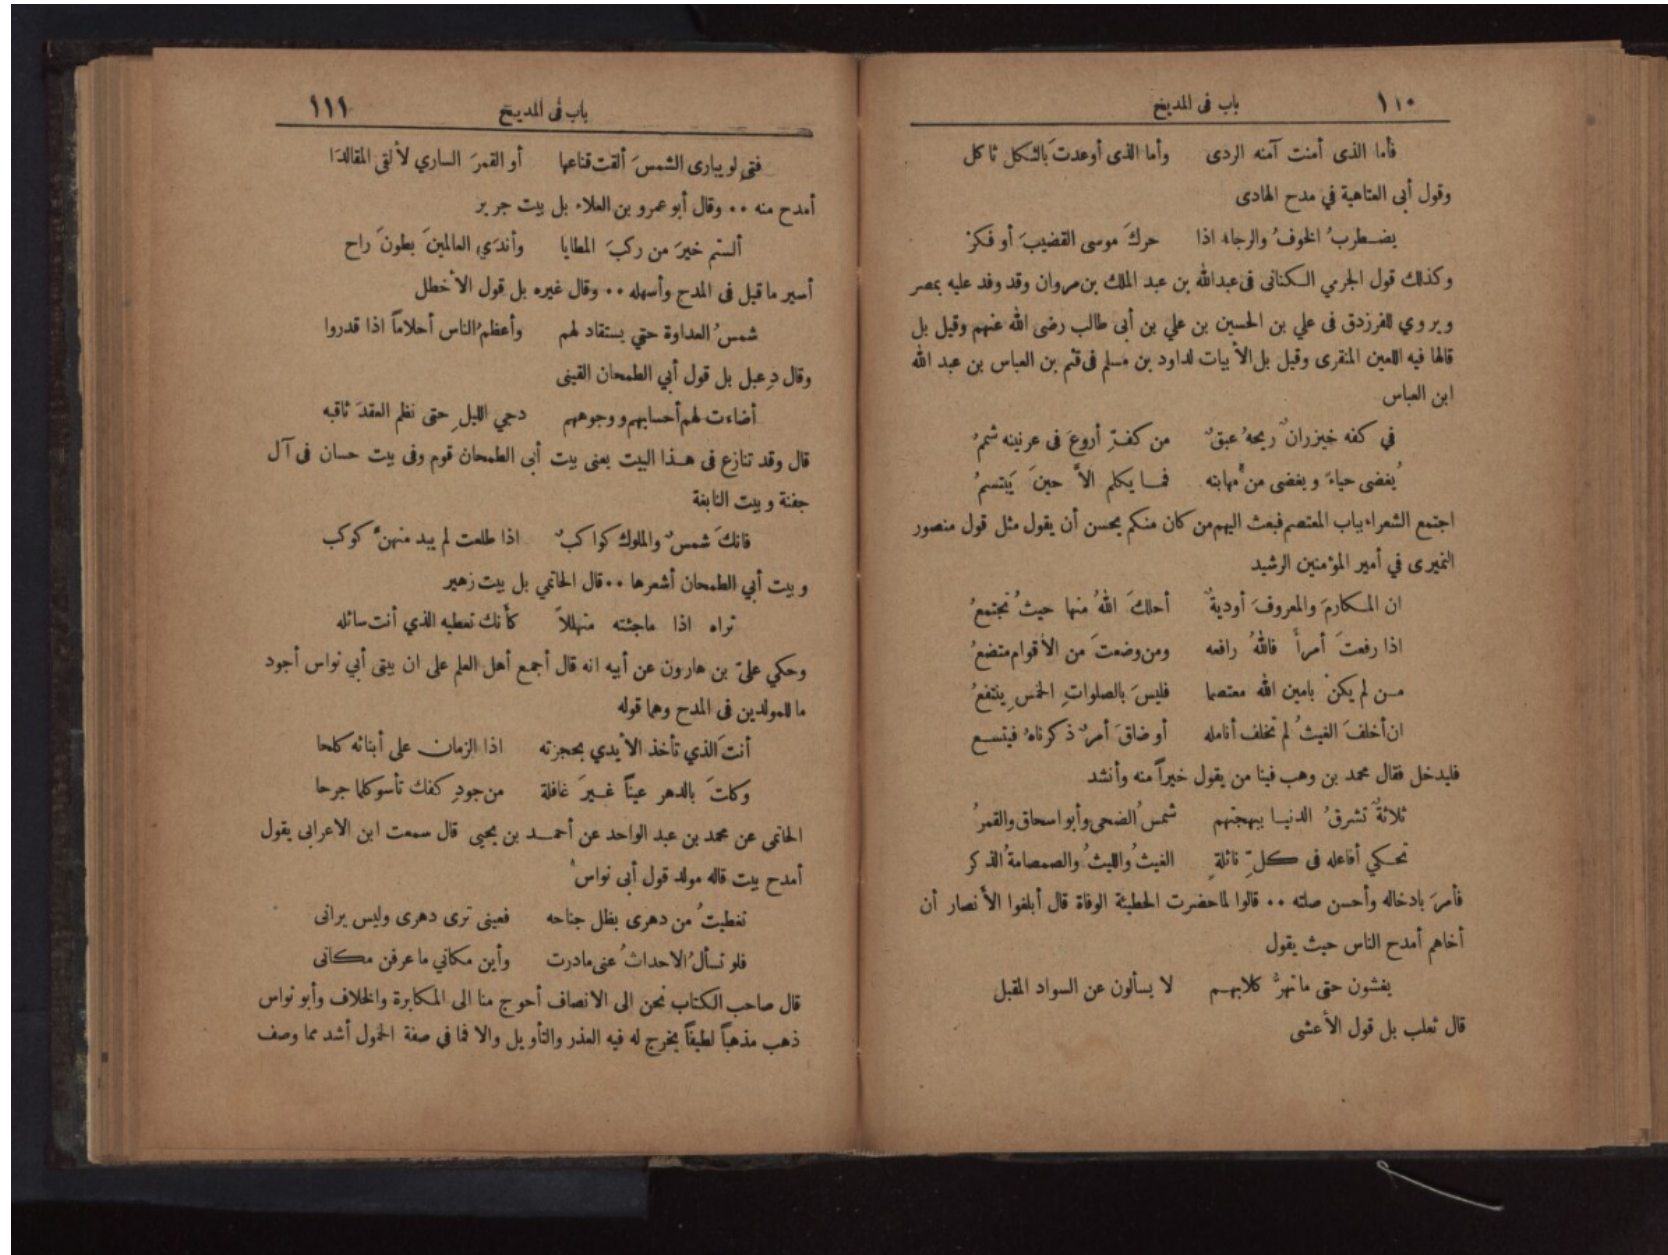 ١١٠
باب فى المديح
فأما الذى أمنت آمنه الردى وأما الذى أوعدتَ بالشكل ثاكل
وقول أبى العتاهية في مدح الهادى
يضطربُ الخوفُ والرجاء اذا حركَ موسى القضيبَ أو فكرْ
وكذلك قول الجرمي الكنانى فى عبدالله بن عبد الملك بن مروان وقد وفد عليه بمصر
ويروي للفرزدق فى علي بن الحسين بن علي بن أبى طالب رضى الله عنهم وقيل بل
قالها فيه اللعين المنقرى وقيل بل الأبيات لداود بن مسلم فى قثم بن العباس بن عبد الله
ابن العباس
في كفه خيزرانٌ ريحهُ عبقٌ من كفِّ أروعَ فى عرنينه شممُ
يُغضى حياءً ويغضى من مَهابته فما يكلم الاَّ حينَ يَبتسمُ
اجتمع الشعراء بباب المعتصم فبعث اليهم من كان منكم يحسن أن يقول مثل قول منصور
النميرى في أمير المؤمنين الرشيد
ان المكارمَ والمعروفَ أوديةٌ أحلكَ اللهُ منها حيثُ تجتمعُ
اذا رفعتَ أمرأً فاللهُ رافعه ومن وضعتَ من الأقوام متضعُ
من لم يكنْ بامين الله معتصما فليسَ بالصلواتِ الخمسِ ينتفعُ
ان أخلفَ الغيثُ لم تخلف أنامله أو ضاقَ أمرٌ ذكرناهُ فيتسع
فليدخل فقال محمد بن وهب فينا من يقول خيراً منه وأنشد
ثلاثةٌ تشرقُ الدنيا ببهجتهم شمسُ الضحى وأبو اسحاق والقمرُ
تحكي أفاعله فى كلِّ نائلةٍ الغيثُ والليثُ والصمصامةُ الذكر
فأمرَ بادخاله وأحسن صلته ٠٠ قالوا لما حضرت الحطيئة الوفاة قال أبلغوا الأنصار أن
أخاهم أمدح الناس حيث يقول
يغشون حتى ما تهرُّ كلابهم لا يسألون عن السواد المقبل
قال ثعلب بل قول الأعشى
باب فى المديح
١١١
فتى لو يبارى الشمسَ ألقت قناعها أو القمرَ الساري لألقى المقالدَا
أمدح منه ٠٠ وقال أبو عمرو بن العلاء بل بيت جرير
ألستم خيرَ من ركبَ المطايا وأندَى العالمينَ بطونَ راح
أسير ما قيل فى المدح وأسهله ٠٠ وقال غيره بل قول الأخطل
شمسُ العداوة حتي يستقاد لهم وأعظم الناس أحلاماً اذا قدروا
وقال دِعبل بل قول أبي الطمحان القينى
أضاءت لهم أحسابهم ووجوههم دجي الليلِ حتى نظم العقدَ ثاقبه
قال وقد تنازع فى هذا البيت يعنى بيت أبى الطمحان قوم وفى بيت حسان فى آل
جفنة وبيت النابغة
فانكَ شمسٌ والملوك كواكبٌ اذا طلعت لم يبد منهنَّ كوكب
وبيت أبي الطمحان أشعرها ٠٠ قال الحاتمي بل بيت زهير
تراه اذا ماجئته متهللاً كأنك تعطيه الذي أنت سائله
وحكي عليّ بن هارون عن أبيه انه قال أجمع أهل العلم على ان بيتى أبي نواس أجود
ما للمولدين فى المدح وهما قوله
أنتَ الذي تأخذ الأيدي بحجزته اذا الزمان على أبنائه كلحا
وكلتَ بالدهر عيناً غيرَ غافلة من جودِ كفك تأسو كلما جرحا
الحاتمى عن محمد بن عبد الواحد عن أحمد بن يحيى قال سمعت ابن الاعرابى يقول
أمدح بيت قاله مولد قول أبى نواس
تغطيتُ من دهرى بظل جناحه فعينى ترى دهرى وليس يرانى
فلو تسأل الاحداثُ عنى مادرت وأين مكاني ما عرفن مكانى
قال صاحب الكتاب نحن الى الانصاف أحوج منا الى المكابرة والخلاف وأبو نواس
ذهب مذهباً لطيفاً يخرج له فيه العذر والتأويل والا فما في صفة الخمول أشد مما وصف